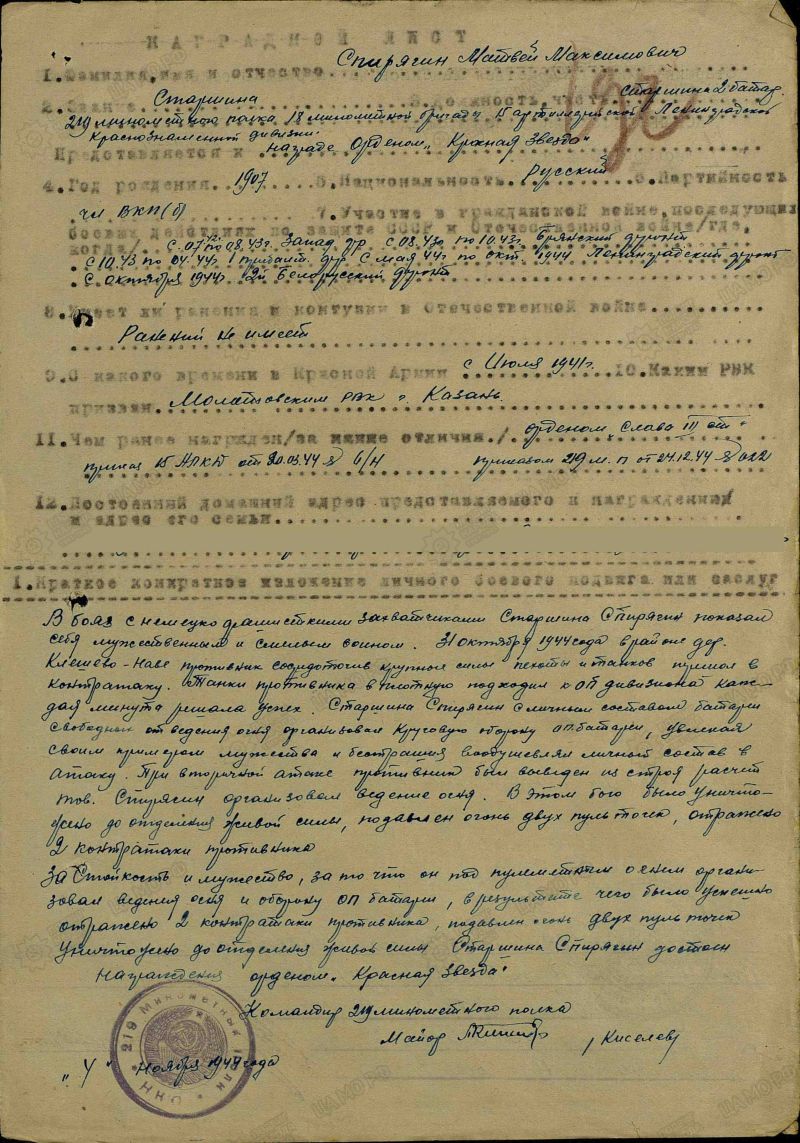 НАГРАДНОЙ ЛИСТ
1.Фамилия,имя и отчество Спирягин Матвей Максимович
2.Звание Старшина 3.Должность,часть старшина 2 батар.
219 минометного полка 18 минометной бригады 15 артиллерийской Ленинградской
Краснознаменной дивизии
Представляется к награде Орденом „Красная Звезда"
4.Год рождения 1907 5.Национальность Русский 6.Партийность
чл ВКП(б) 7.Участие в гражданской войне,последующих
боевых действиях по защите СССР и Отечественной войне/где,
когда/ с 07 по 08.43г. Запад. фр с 08.43г по 10.43г. Брянский фронт
с 10.43 по 04.44г 1 прибалт. фр. С мая 44г по окт. 1944 Ленинградский фронт
с октября 1944г 2й Белорусский фронт
8.Имеет ли ранения и контузии в Отечественной войне
Ранений не имеет
9.С какого времени в Красной Армии с Июля 1941г. 10.Каким РВК
призван Молотовским РВК г. Казань
11.Чем ранее награжден/за какие отличия./ орденом „Слава III ст"
приказ 15 АПКД от 30.03.44 б/н приказом 219 м.п от 24.12.44 022
12.Постоянный домашний адрес представляемого к награждению
и адрес его семьи
1.Краткое конкретное изложение личного боевого подвига или заслуг
В боях с немецко фашистскими захватчиками Старшина Спирягин показал
себя мужественным и смелым воином. 31 октября 1944 года в районе дер.
Клешево-Наве противник сосредоточив крупные силы пехоты и танков перешел в
контратаку. Танки противника в плотную подходил к ОП дивизиона каж-
дая минута решала успех. Старшина Спирягин с личным составом батареи
свободных от ведения огня организовал Круговую оборону ОП батареи, увлекая
своим примером мужества и бесстрашия воодушевлял личный состав в
атаку. При вторичной атаке противник был выведен из строя расчет
тов. Спирягин организовал ведение огня. В этом бою было уничто-
жено до отделения живой силы, подавлен огонь двух пульточек, отражено
2 контратаки противника
За Стойкость и мужество, за то что он под пулеметным огнем органи-
зовал ведения огня и оборону ОП батареи, в результате чего было успешно
отражено 2 контратаки противника, подавлен огонь двух пульточек
уничтожено до отделения живой силы Старшина Спирягин достоин
Награждения орденом „Красная Звезда"
Командир 219 минометного полка
Майор /Киселев/
„4" Ноября 1944 года
219 Минометный полк
ЦАМО РФ